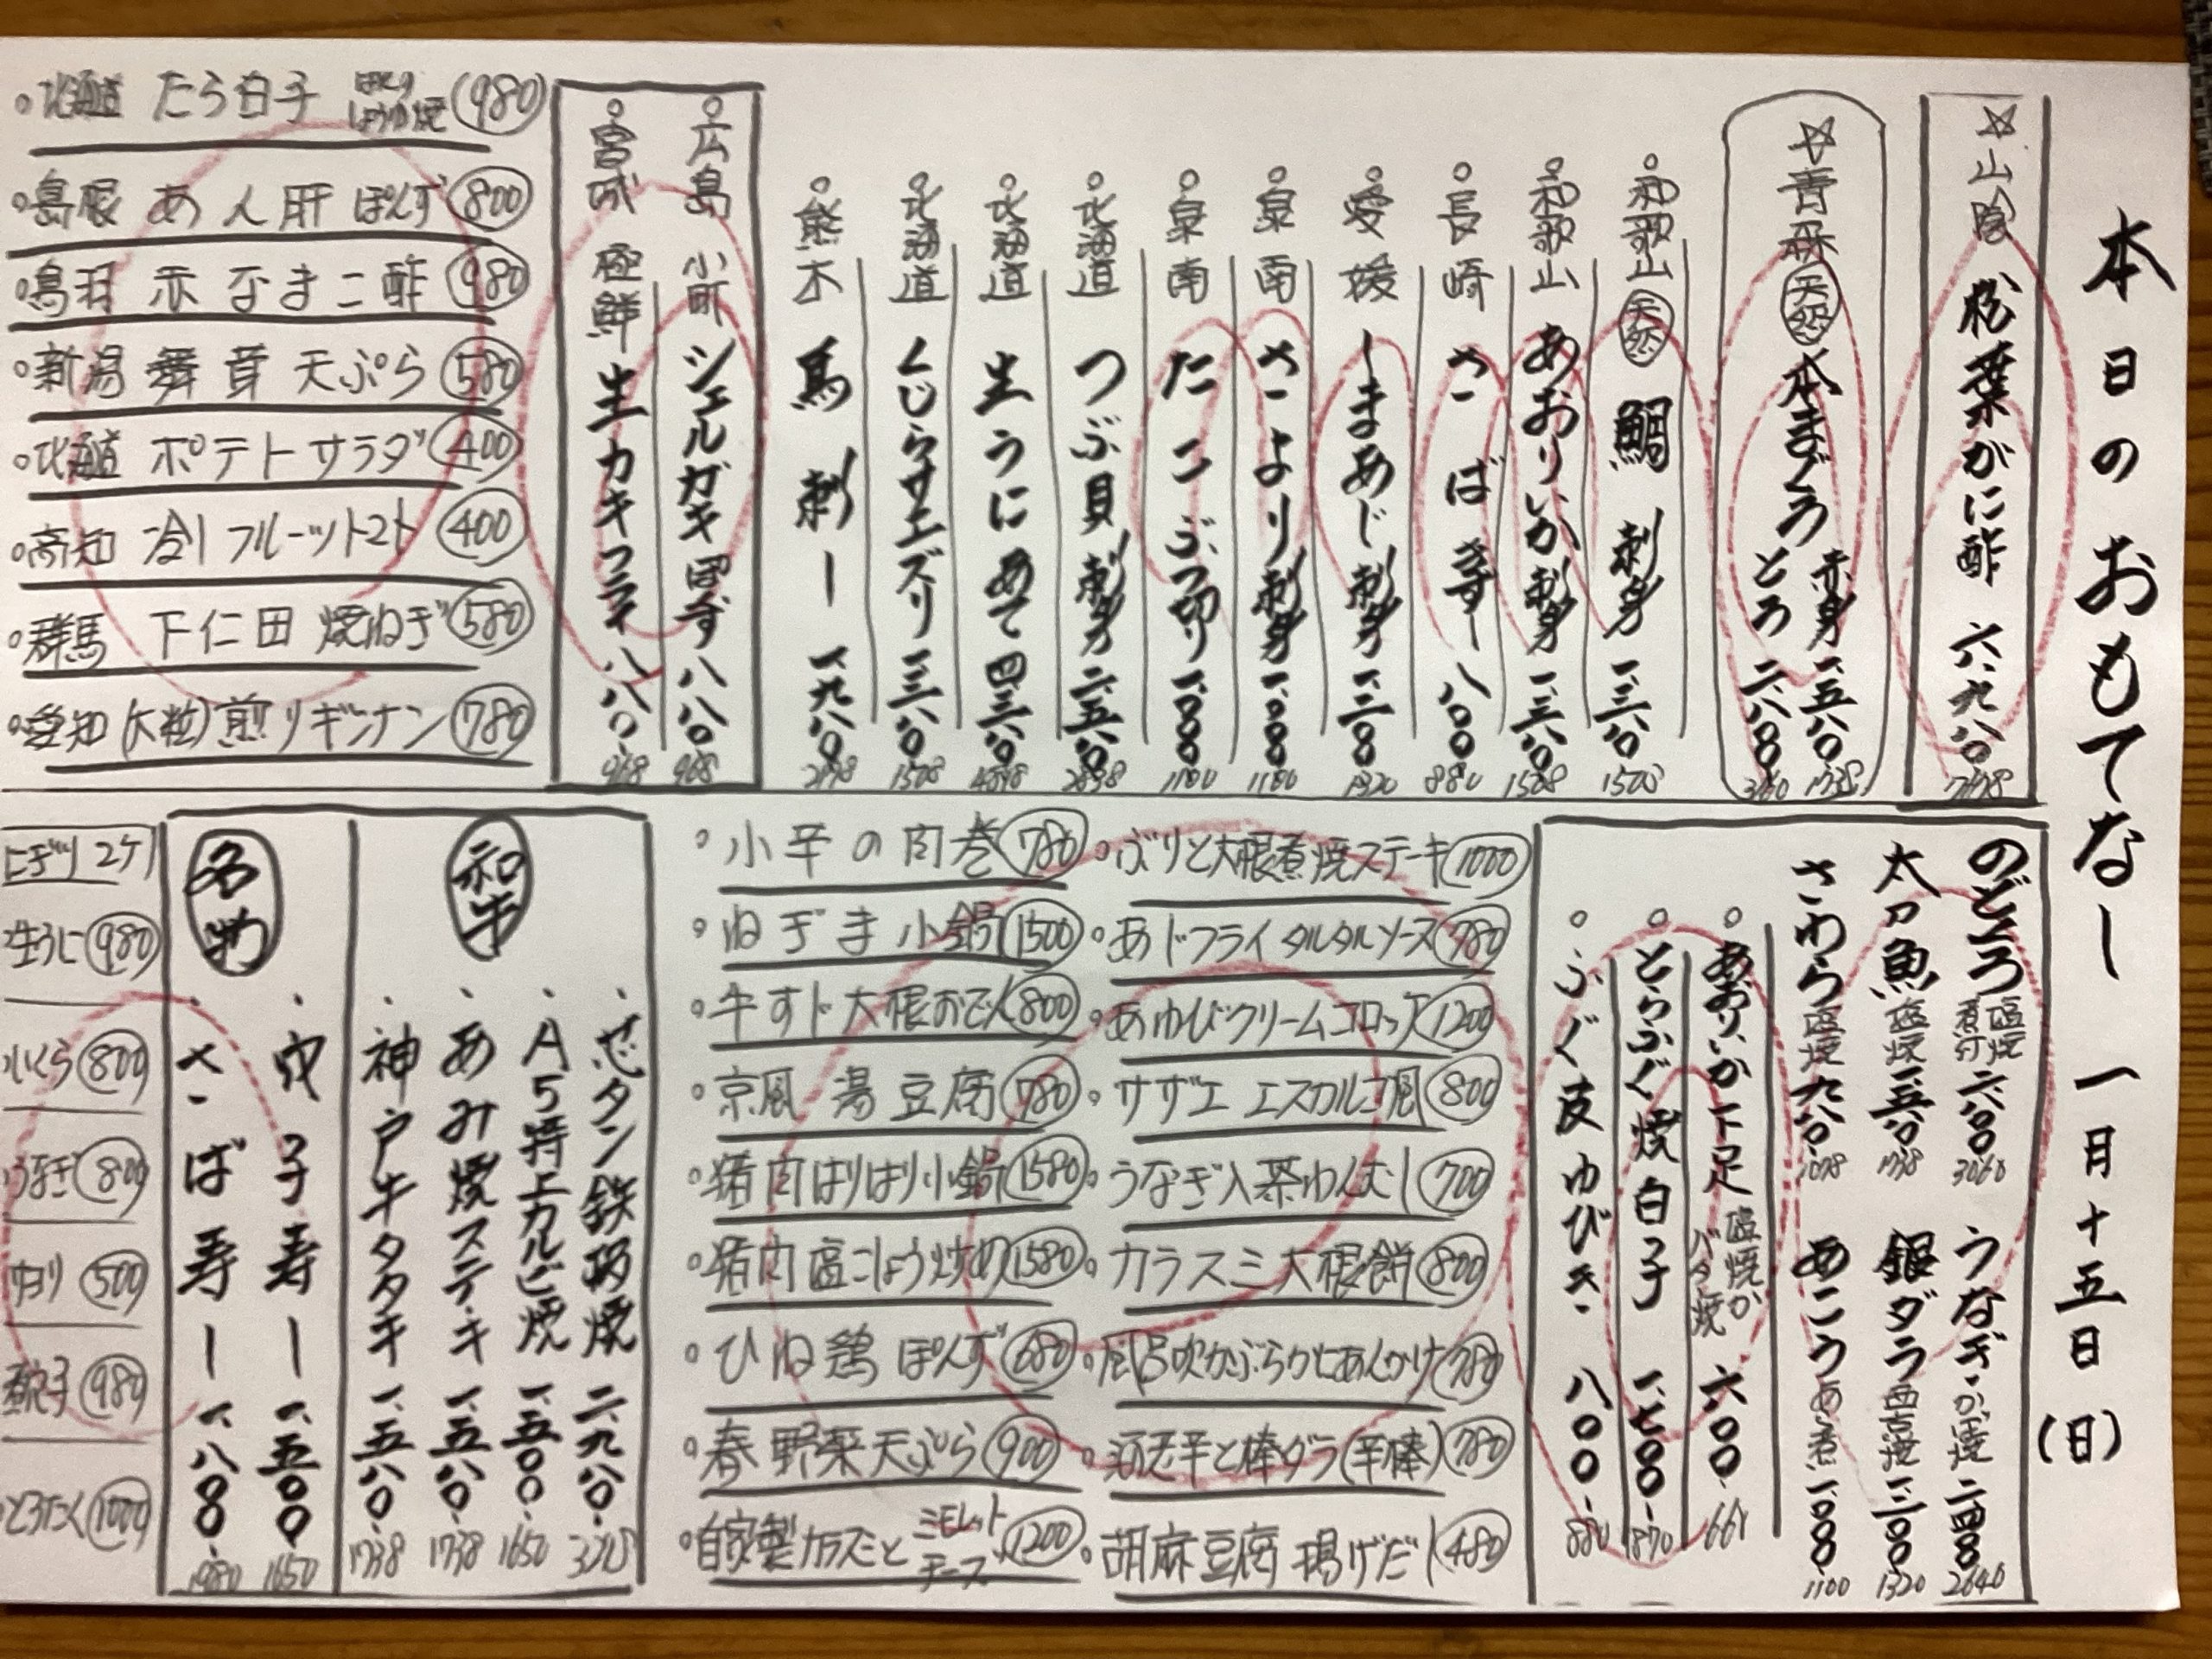 本日のおもてなし 一月十五日(日)
☆山陰 松葉がに酢 六、九八〇 7678
☆青森 天然 本まぐろ 赤身 一、五八〇 1738
とろ 二、八八〇 3160
○和歌山 天然 鯛 刺身 一、三八〇 1508
○和歌山 あおりいか刺身 一、三八〇 1508
○長崎 さばきずし 八〇〇 880
○愛媛 しまあじ刺身 一、二〇〇 1320
○泉南 さより刺身 一、〇〇〇 1100
○泉南 たこぶつ切り 一、〇〇〇 1100
○北海道 つぶ貝刺身 二、五八〇 2838
○北海道 生うにあて 四、三八〇 4818
○北海道 くじらサエズリ 一、三八〇 1508
○熊本 馬刺し 一、九八〇 2178
○広島 小町 シェルガキぽんず 八八〇 968
○宮城 極鮮 生カキフライ 八八〇 968
○北海道 たら白子 ぽんず しょうゆ焼 980
○島根 あん肝ぽんず 800
○鳥羽 赤なまこ酢 980
○新潟 舞茸天ぷら 580
○北海道 ポテトサラダ 400
○高知 冷しフルーツトマト 400
○群馬 下仁田 焼ねぎ 580
○愛知 (大粒)煎りギンナン 780
のどぐろ 塩焼 煮付 二、八〇〇 3060
太刀魚 塩焼 一、五八〇 1738
さわら 塩焼 九八〇 1078
うなぎ かば焼 二、四〇〇 2640
銀ダラ 西京焼 一、二〇〇 1320
あこう あら煮 一、〇〇〇 1100
○あおりいか下足 塩焼か バター焼 六〇〇 660
○とらふぐ焼白子 一、七〇〇 1870
○ふぐ皮ゆびき 八〇〇 880
○ぶりと大根煮焼ステーキ 1000
○あじフライタルタルソース 780
○あゆびクリームコロッケ 1200
○サザエ エスカルゴ風 800
○うなぎ入茶わんむし 700
○カラスミ大根餅 800
○風呂吹かぶらかにあんかけ 780
○海老芋と棒ダラ(芋棒) 780
○胡麻豆腐 揚げだし 480
○小芋の肉巻 780
○ねぎま小鍋 1500
○牛すじ大根おでん 800
○京風 湯豆腐 780
○猪肉はりはり小鍋 1580
○猪肉塩こしょう炒め 1580
○ひね鶏ぽんず 680
○春野菜天ぷら 900
○自家製カラスミと ミモレットチーズ 1200
和牛
・芯タン鉄砲焼 二、九八〇 3278
・A5特上カルビ焼 一、五〇〇 1650
・あみ焼ステーキ 一、五八〇 1738
・神戸牛タタキ 一、五八〇 1738
名物
・穴子寿し 一、五〇〇 1650
・さば寿し 一、八〇〇 1980
にぎり2ケ
・生うに 980
・いくら 800
・うなぎ 800
500
・煮穴子 980
・とろたく 1000